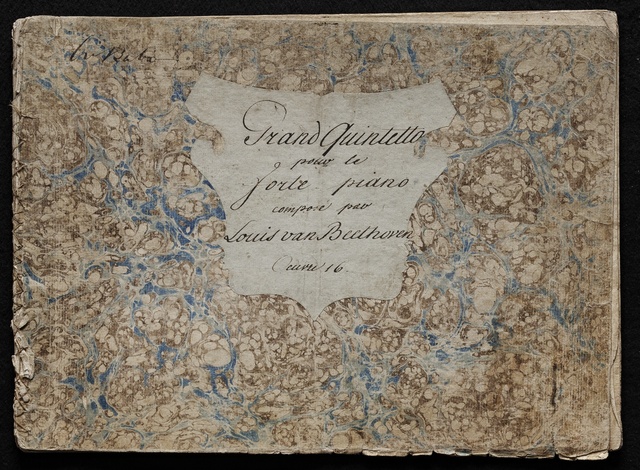 Grand Quintetto
pour le
forte piano
composé par
Louis van Beethoven
Oeuvre 16.